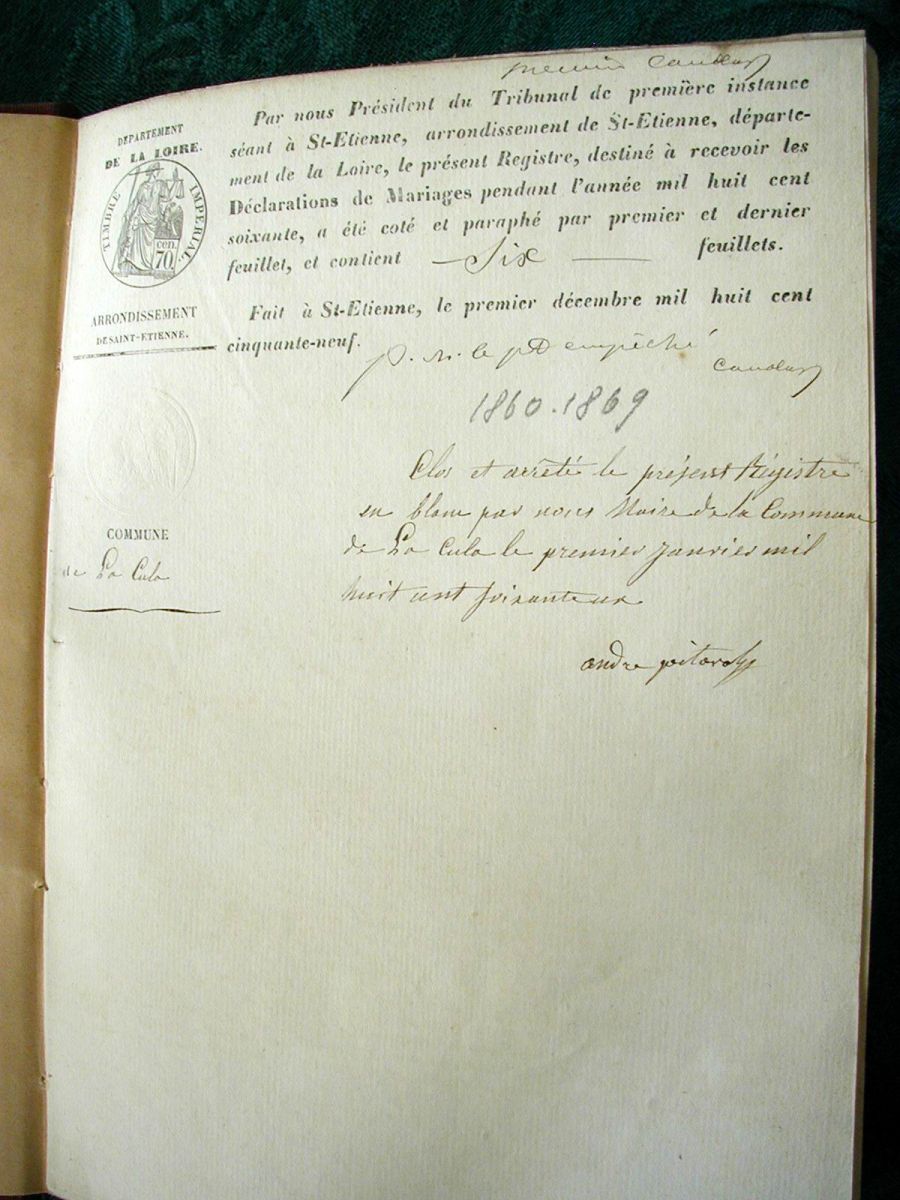 premier
DÉPARTEMENT
DE LA LOIRE.
TIMBRE IMPÉRIAL.
cen.
70
ARRONDISSEMENT
DE SAINT-ETIENNE.
COMMUNE
de La Cula
Par nous Président du Tribunal de première instance
séant à St-Etienne, arrondissement de St-Etienne, départe-
ment de la Loire, le présent Registre, destiné à recevoir les
Déclarations de Mariages pendant l'année mil huit cent
soixante, a été coté et paraphé par premier et dernier
feuillet, et contient Six feuillets.
Fait à St-Etienne, le premier décembre mil huit cent
cinquante-neuf.
empêché
1860.1869
Clos et arrêté le présent Régistre
en blanc par nous Maire de la Commune
de La Cula le premier Janvier mil
huit cent soixante un
andre